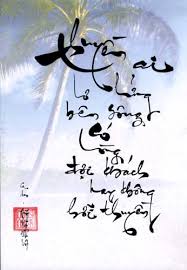 Thuyền ai
lơ lửng
bên sông
Có
lòng
đợi khách
hay không
hỡi thuyền